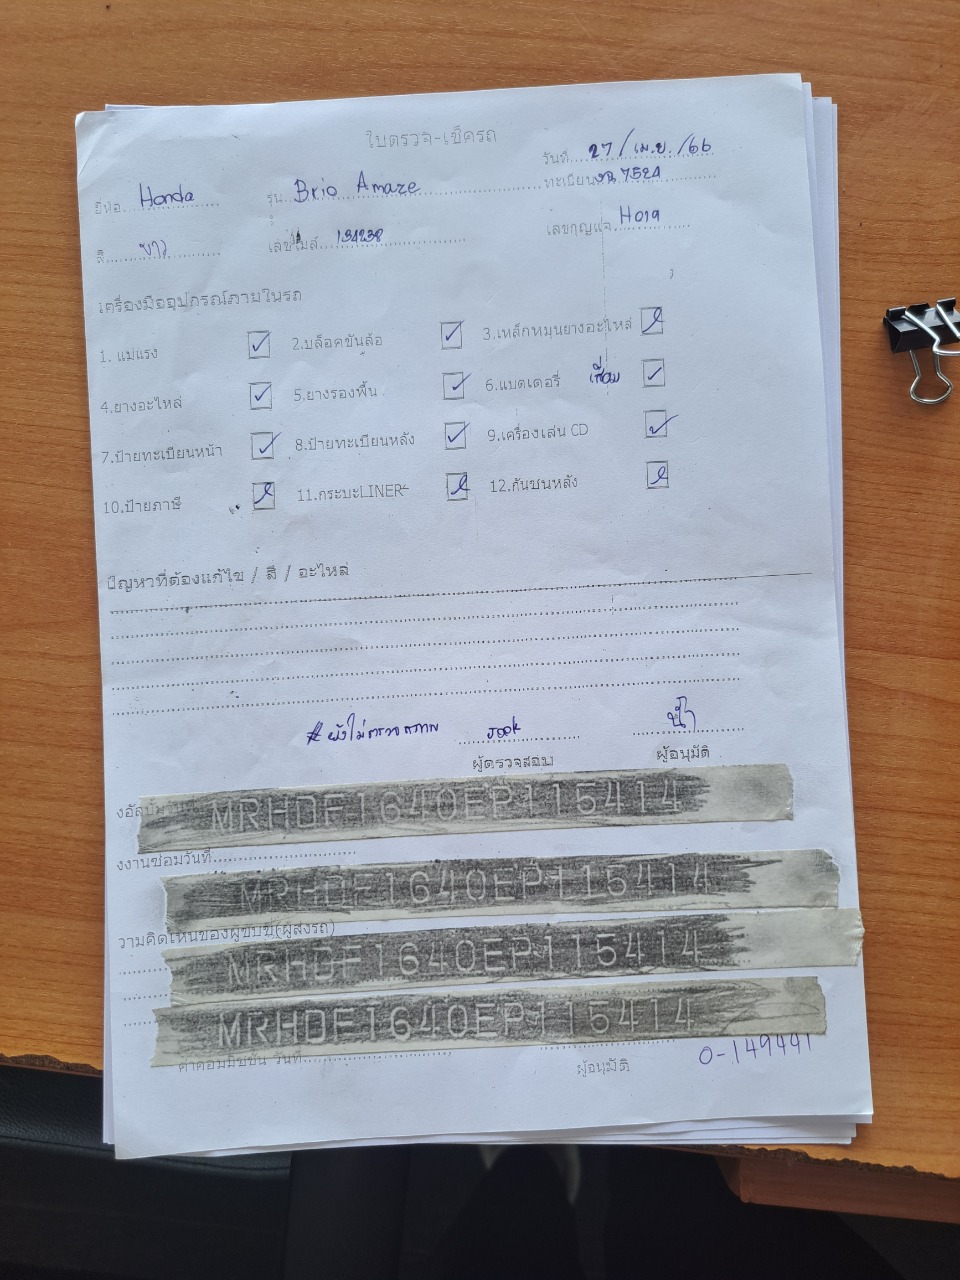 ใบตรวจ-เช็ครถ
วันที่ 27/เม.ย./66
ยี่ห้อ Honda รุ่น Brio Amaze ทะเบียน 7524
สี ขาว เลขไมล์ 134238 เลขกุญแจ H019
เครื่องมืออุปกรณ์ภายในรถ
1. แม่แรง 2.บล็อคขันล้อ 3.เหล็กหมุนยางอะไหล่
4.ยางอะไหล่ 5.ยางรองพื้น 6.แบตเตอรี่ เสื่อม
7.ป้ายทะเบียนหน้า 8.ป้ายทะเบียนหลัง 9.เครื่องเล่น CD
10.ป้ายภาษี 11.กระบะLINER 12.กันชนหลัง
ปัญหาที่ต้องแก้ไข / สี / อะไหล่
# ยังไม่ตรวจสภาพ Jook
ผู้ตรวจสอบ ผู้อนุมัติ
MRHDF1640EP115414
งงานซ่อมวันที่
MRHDF1640EP115414
วามคิดเห็นของผู้ขับขี่(ผู้ส่งรถ)
MRHDF1640EP115414
MRHDF1640EP115414
ค่าคอมมิชชั่น วันที่ ผู้อนุมัติ 0-149441